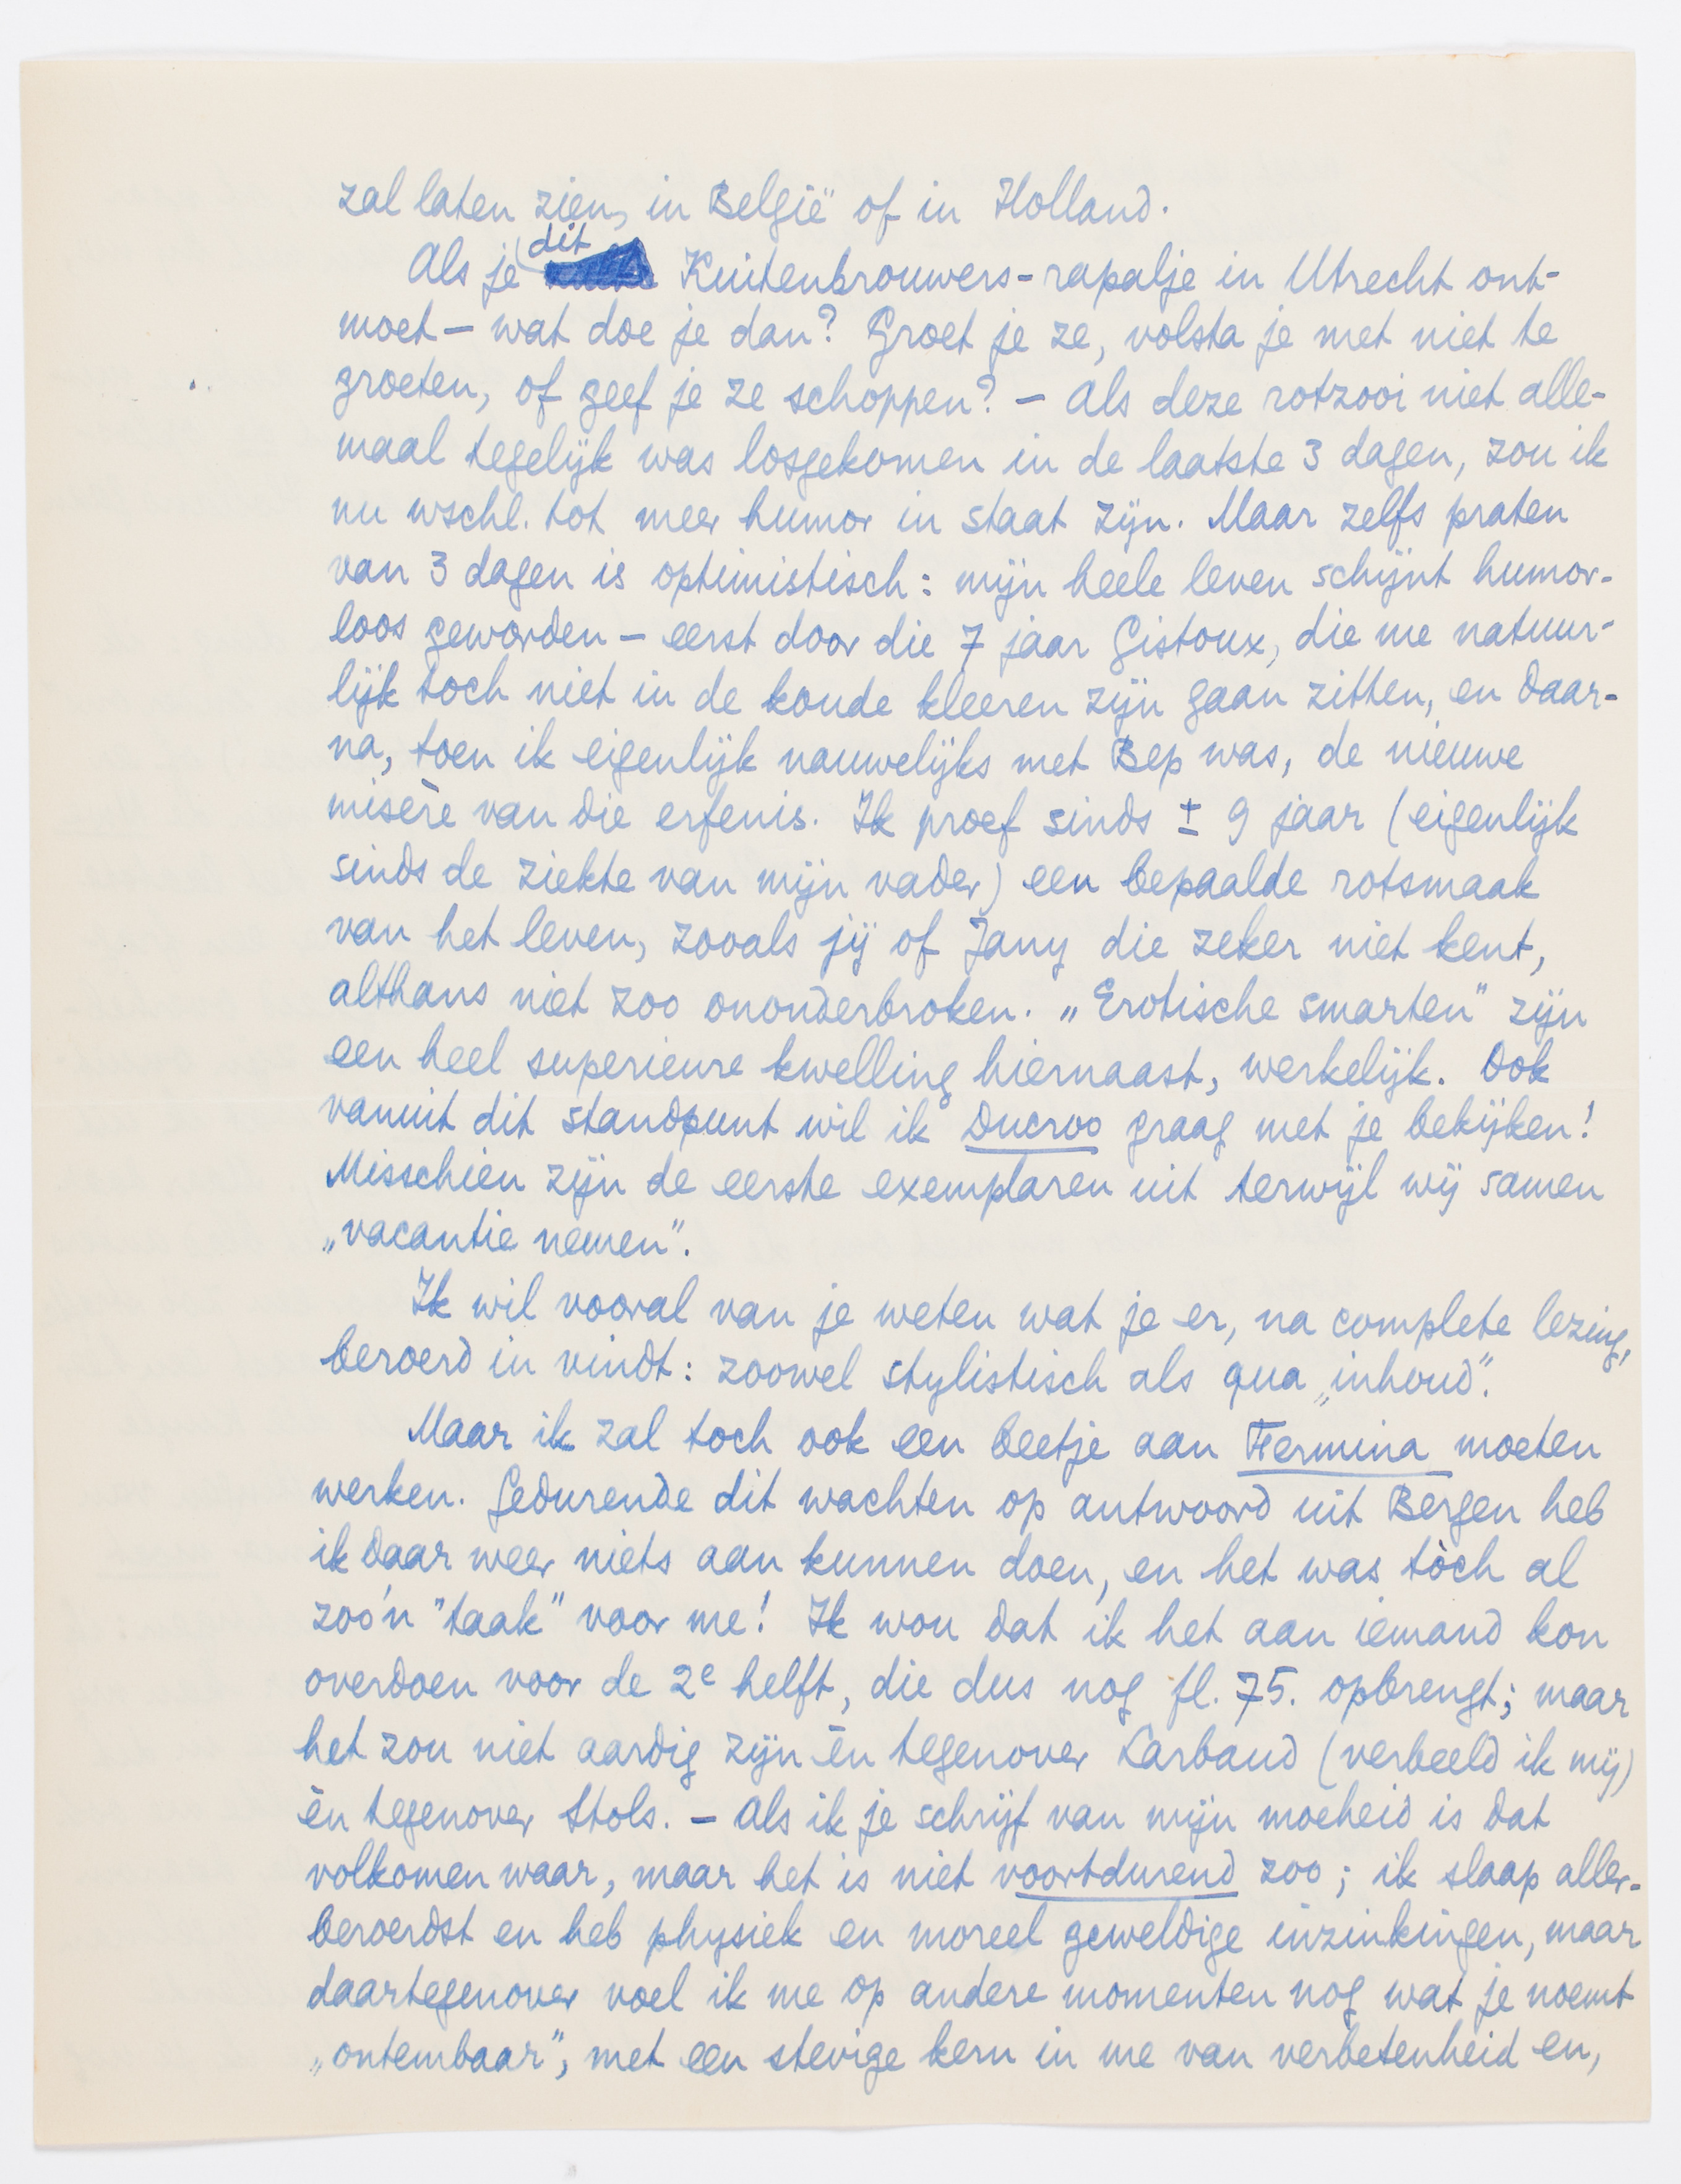 zal laten zien, in België of in Holland.
Als je dit Kuitenbrouwers-rapalje in Utrecht ont-
moet — wat doe je dan? Groet je ze, volsta je met niet te
groeten, of geef je ze schoppen? — Als deze rotzooi niet alle-
maal tegelijk was losgekomen in de laatste 3 dagen, zou ik
nu wschl. tot meer humor in staat zijn. Maar zelfs praten
van 3 dagen is optimistisch: mijn heele leven schijnt humor-
loos geworden — eerst door die 7 jaar Gistoux, die me natuur-
lijk toch niet in de koude kleeren zijn gaan zitten, en daar-
na, toen ik eigenlijk nauwelijks met Bep was, de nieuwe
misère van die erfenis. Ik proef sinds ± 9 jaar (eigenlijk
sinds de ziekte van mijn vader) een bepaalde rotsmaak
van het leven, zooals jij of Jany die zeker niet kent,
althans niet zoo ononderbroken. „Erotische smarten" zijn
een heel superieure kwelling hiernaast, werkelijk. Ook
vanuit dit standpunt wil ik Ducroo graag met je bekijken!
Misschien zijn de eerste exemplaren uit terwijl wij samen
„vacantie nemen".
Ik wil vooral van je weten wat je er, na complete lezing,
beroerd in vindt: zoowel stylistisch als qua „inhoud".
Maar ik zal toch ook een beetje aan Fermina moeten
werken. Gedurende dit wachten op antwoord uit Bergen heb
ik daar weer niets aan kunnen doen, en het was tòch al
zoo'n "taak" voor me! Ik wou dat ik het aan iemand kon
overdoen voor de 2e helft, die dus nog fl. 75. opbrengt; maar
het zou niet aardig zijn èn tegenover Larbaud (verbeeld ik mij)
èn tegenover Stols. — Als ik je schrijf van mijn moeheid is dat
volkomen waar, maar het is niet voortdurend zoo; ik slaap aller-
beroerdst en heb physiek en moreel geweldige inzinkingen, maar
daartegenover voel ik me op andere momenten nog wat je noemt
„ontembaar", met een stevige kern in me van verbetenheid en,